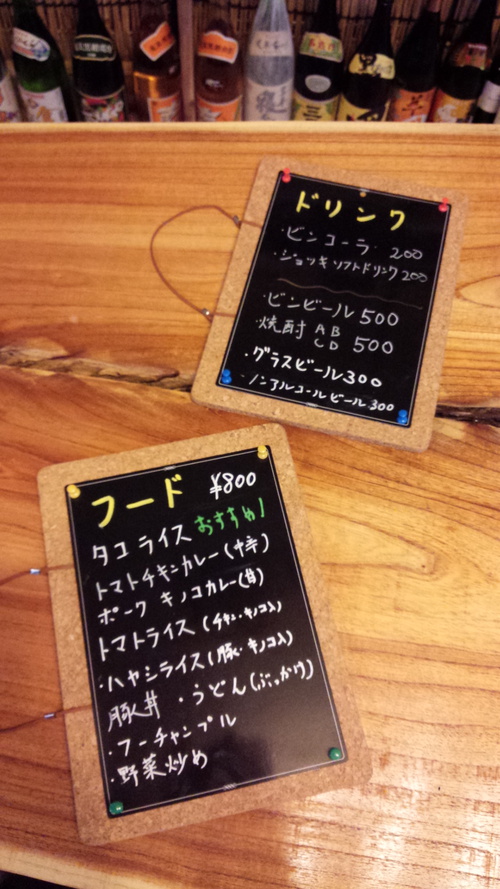 ドリンク
・ビンコーラ 200
・ジョッキソフトドリンク200
・ビンビール500
・焼酎 AB CD 500
・グラスビール300
・ノンアルコールビール300
フード ¥800
タコライス おすすめ!
トマトチキンカレー(中辛)
ポークキノコカレー(甘)
トマトライス(チキン・キノコ入)
・ハヤシライス(豚・キノコ入)
豚丼 ・うどん(ぶっかけ)
・フーチャンプル
・野菜炒め